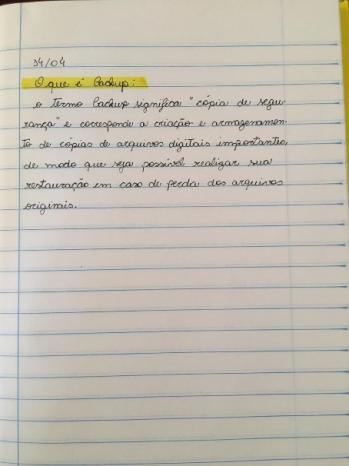 24/04
O que é Backup:
o termo Backup significa "cópia de segu
rança" e corresponde a criação e armazenamen
to de cópias de arquivos digitais importantes,
de modo que seja possível realizar sua
restauração em caso de perda dos arquivos
originais.